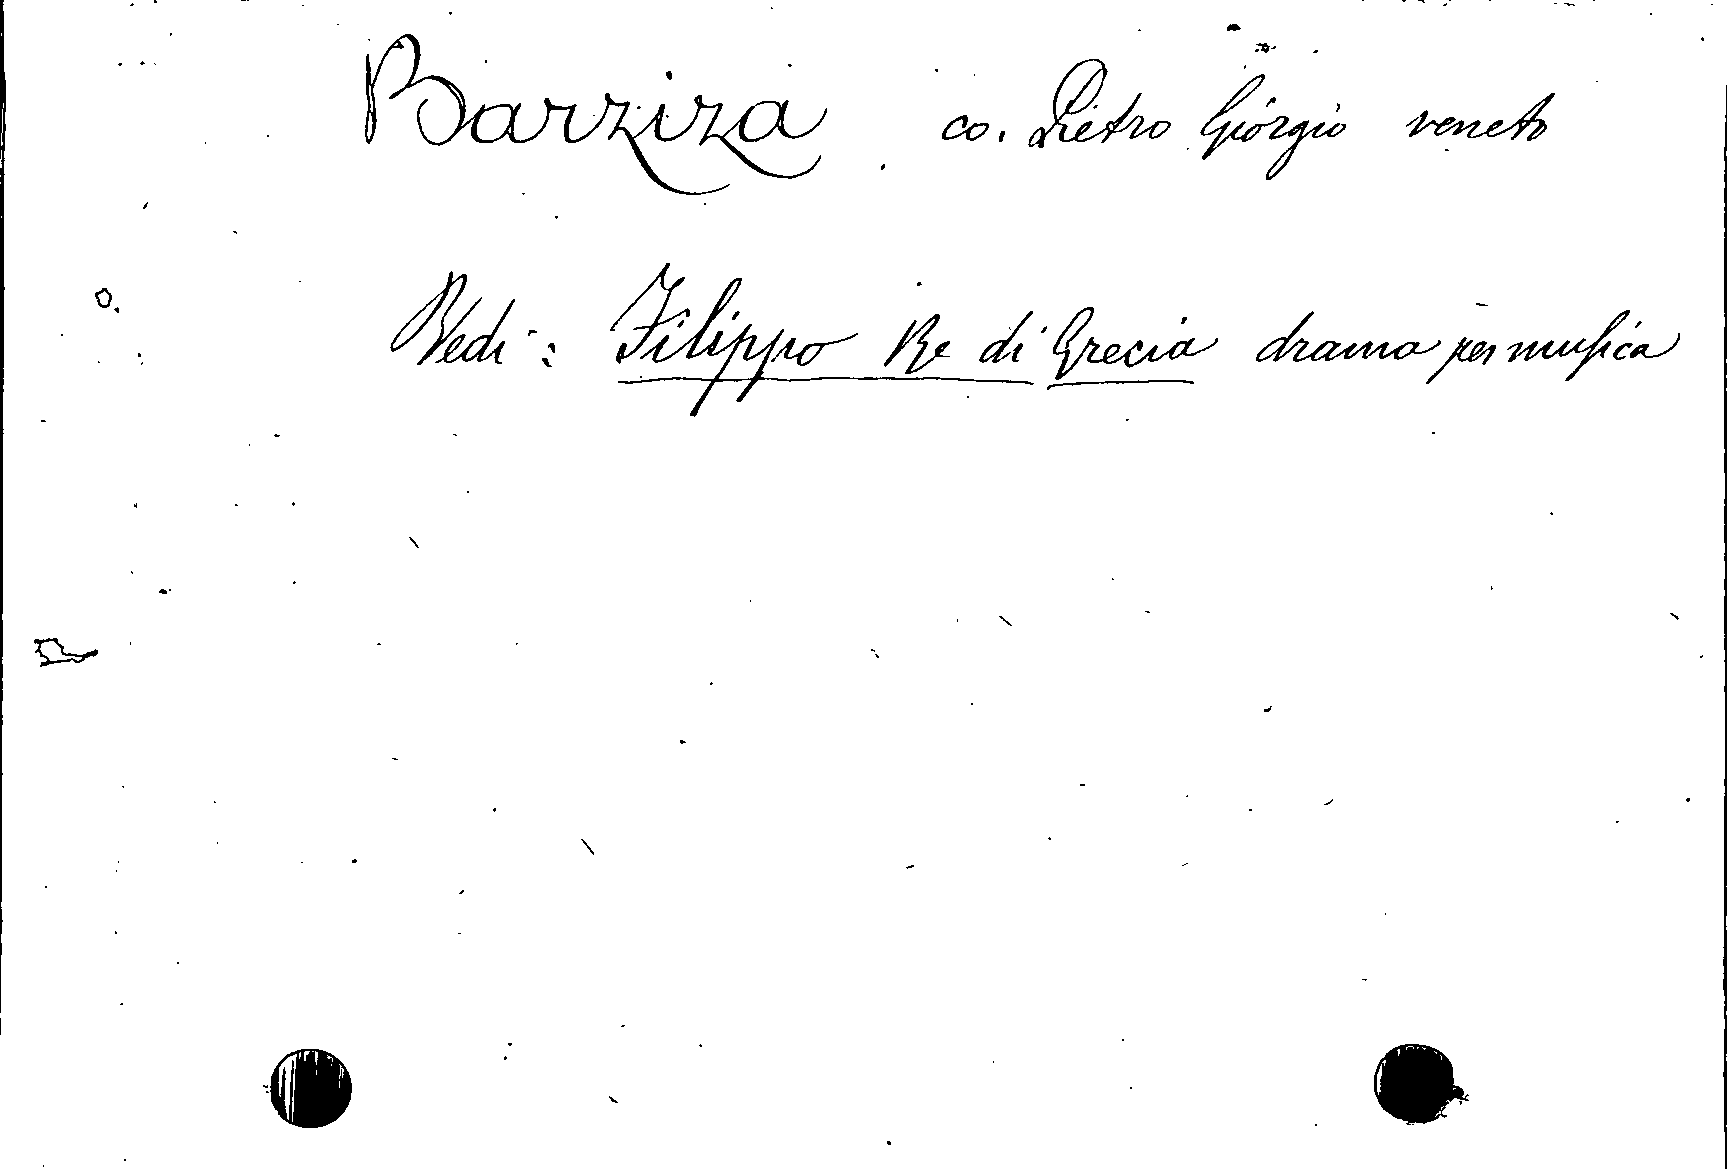 Barziza co. Pietro Giorgio veneto
Vedi: Filippo Re di Grecia drama per musica